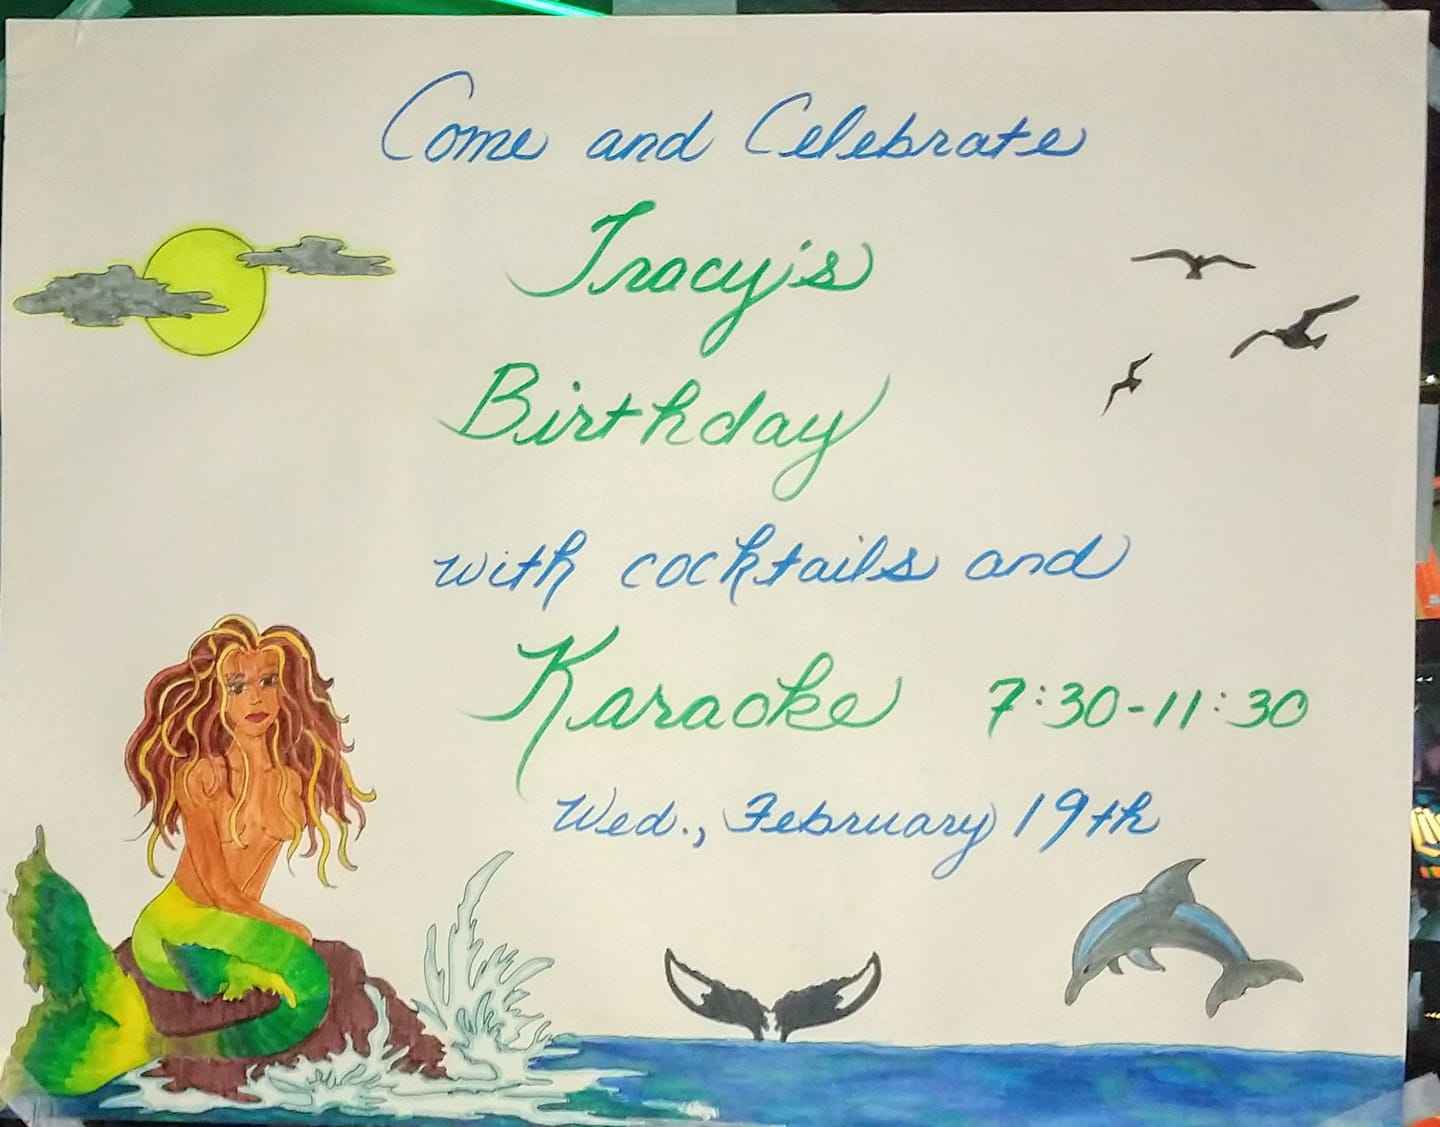 Come and Celebrate
Tracy's
Birthday
with cocktails and
Karaoke 7:30-11:30
Wed., February 19th